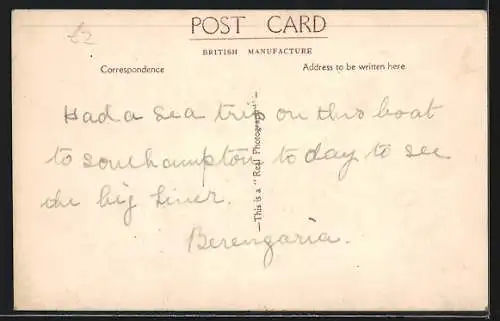 £2
POST CARD
BRITISH MANUFACTURE
Correspondence
Address to be written here
Had a sea trip on this boat
to southampton to day to see
the big Liner.
Berengaria.
—This is a "Real Photograph"—